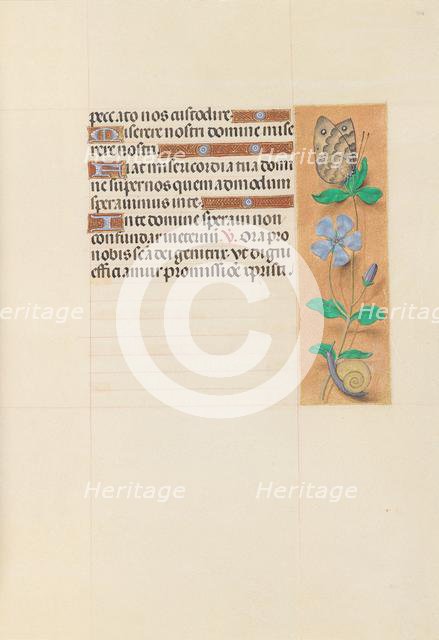 peccato nos custodire.
Miserere nostri domine mise
rere nostri.
Fiat misericordia tua domi
ne super nos quemadmodum
speravimus in te.
In te domine speravi non
confundar in eternū ℣. Ora pro
nobis scā dei genitrix. Vt digni
efficiamur promissiōe xpristi.
Heritage Heritage
Heritage Heritage
Heritage Heritage